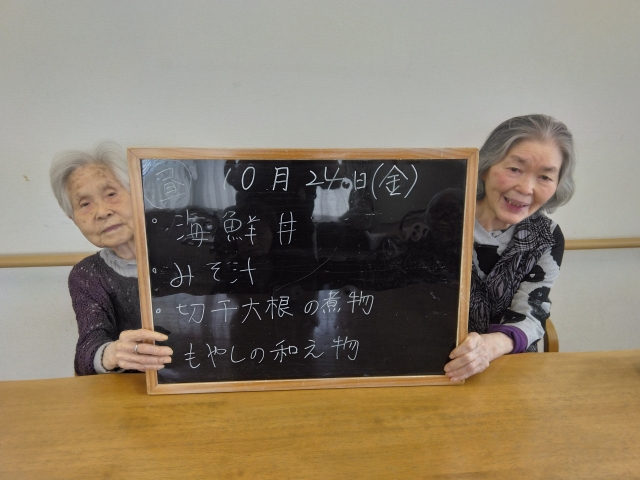 10月24日(金)
• 海鮮丼
• みそ汁
• 切干大根の煮物
もやしの和え物